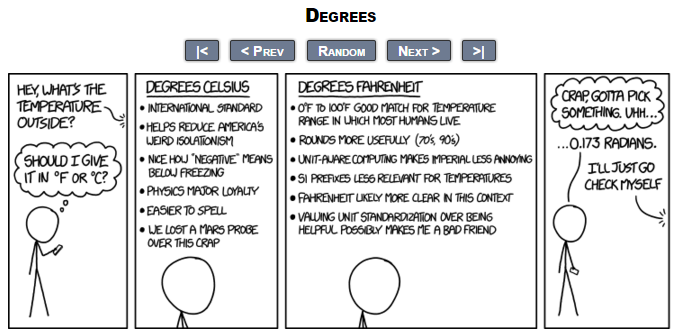 Degrees
|<
< Prev
Random
Next >
>|
HEY, WHAT'S THE
TEMPERATURE
OUTSIDE?
SHOULD I GIVE
IT IN °F OR °C?
DEGREES CELSIUS
• INTERNATIONAL STANDARD
• HELPS REDUCE AMERICA'S
WEIRD ISOLATIONISM
• NICE HOW "NEGATIVE" MEANS
BELOW FREEZING
• PHYSICS MAJOR LOYALTY
• EASIER TO SPELL
• WE LOST A MARS PROBE
OVER THIS CRAP
DEGREES FAHRENHEIT
• 0°F TO 100°F GOOD MATCH FOR TEMPERATURE
RANGE IN WHICH MOST HUMANS LIVE
• ROUNDS MORE USEFULLY (70's, 90's)
• UNIT-AWARE COMPUTING MAKES IMPERIAL LESS ANNOYING
• SI PREFIXES LESS RELEVANT FOR TEMPERATURES
• FAHRENHEIT LIKELY MORE CLEAR IN THIS CONTEXT
• VALUING UNIT STANDARDIZATION OVER BEING
HELPFUL POSSIBLY MAKES ME A BAD FRIEND
CRAP, GOTTA PICK
SOMETHING. UHH...
...0.173 RADIANS.
I'LL JUST GO
CHECK MYSELF